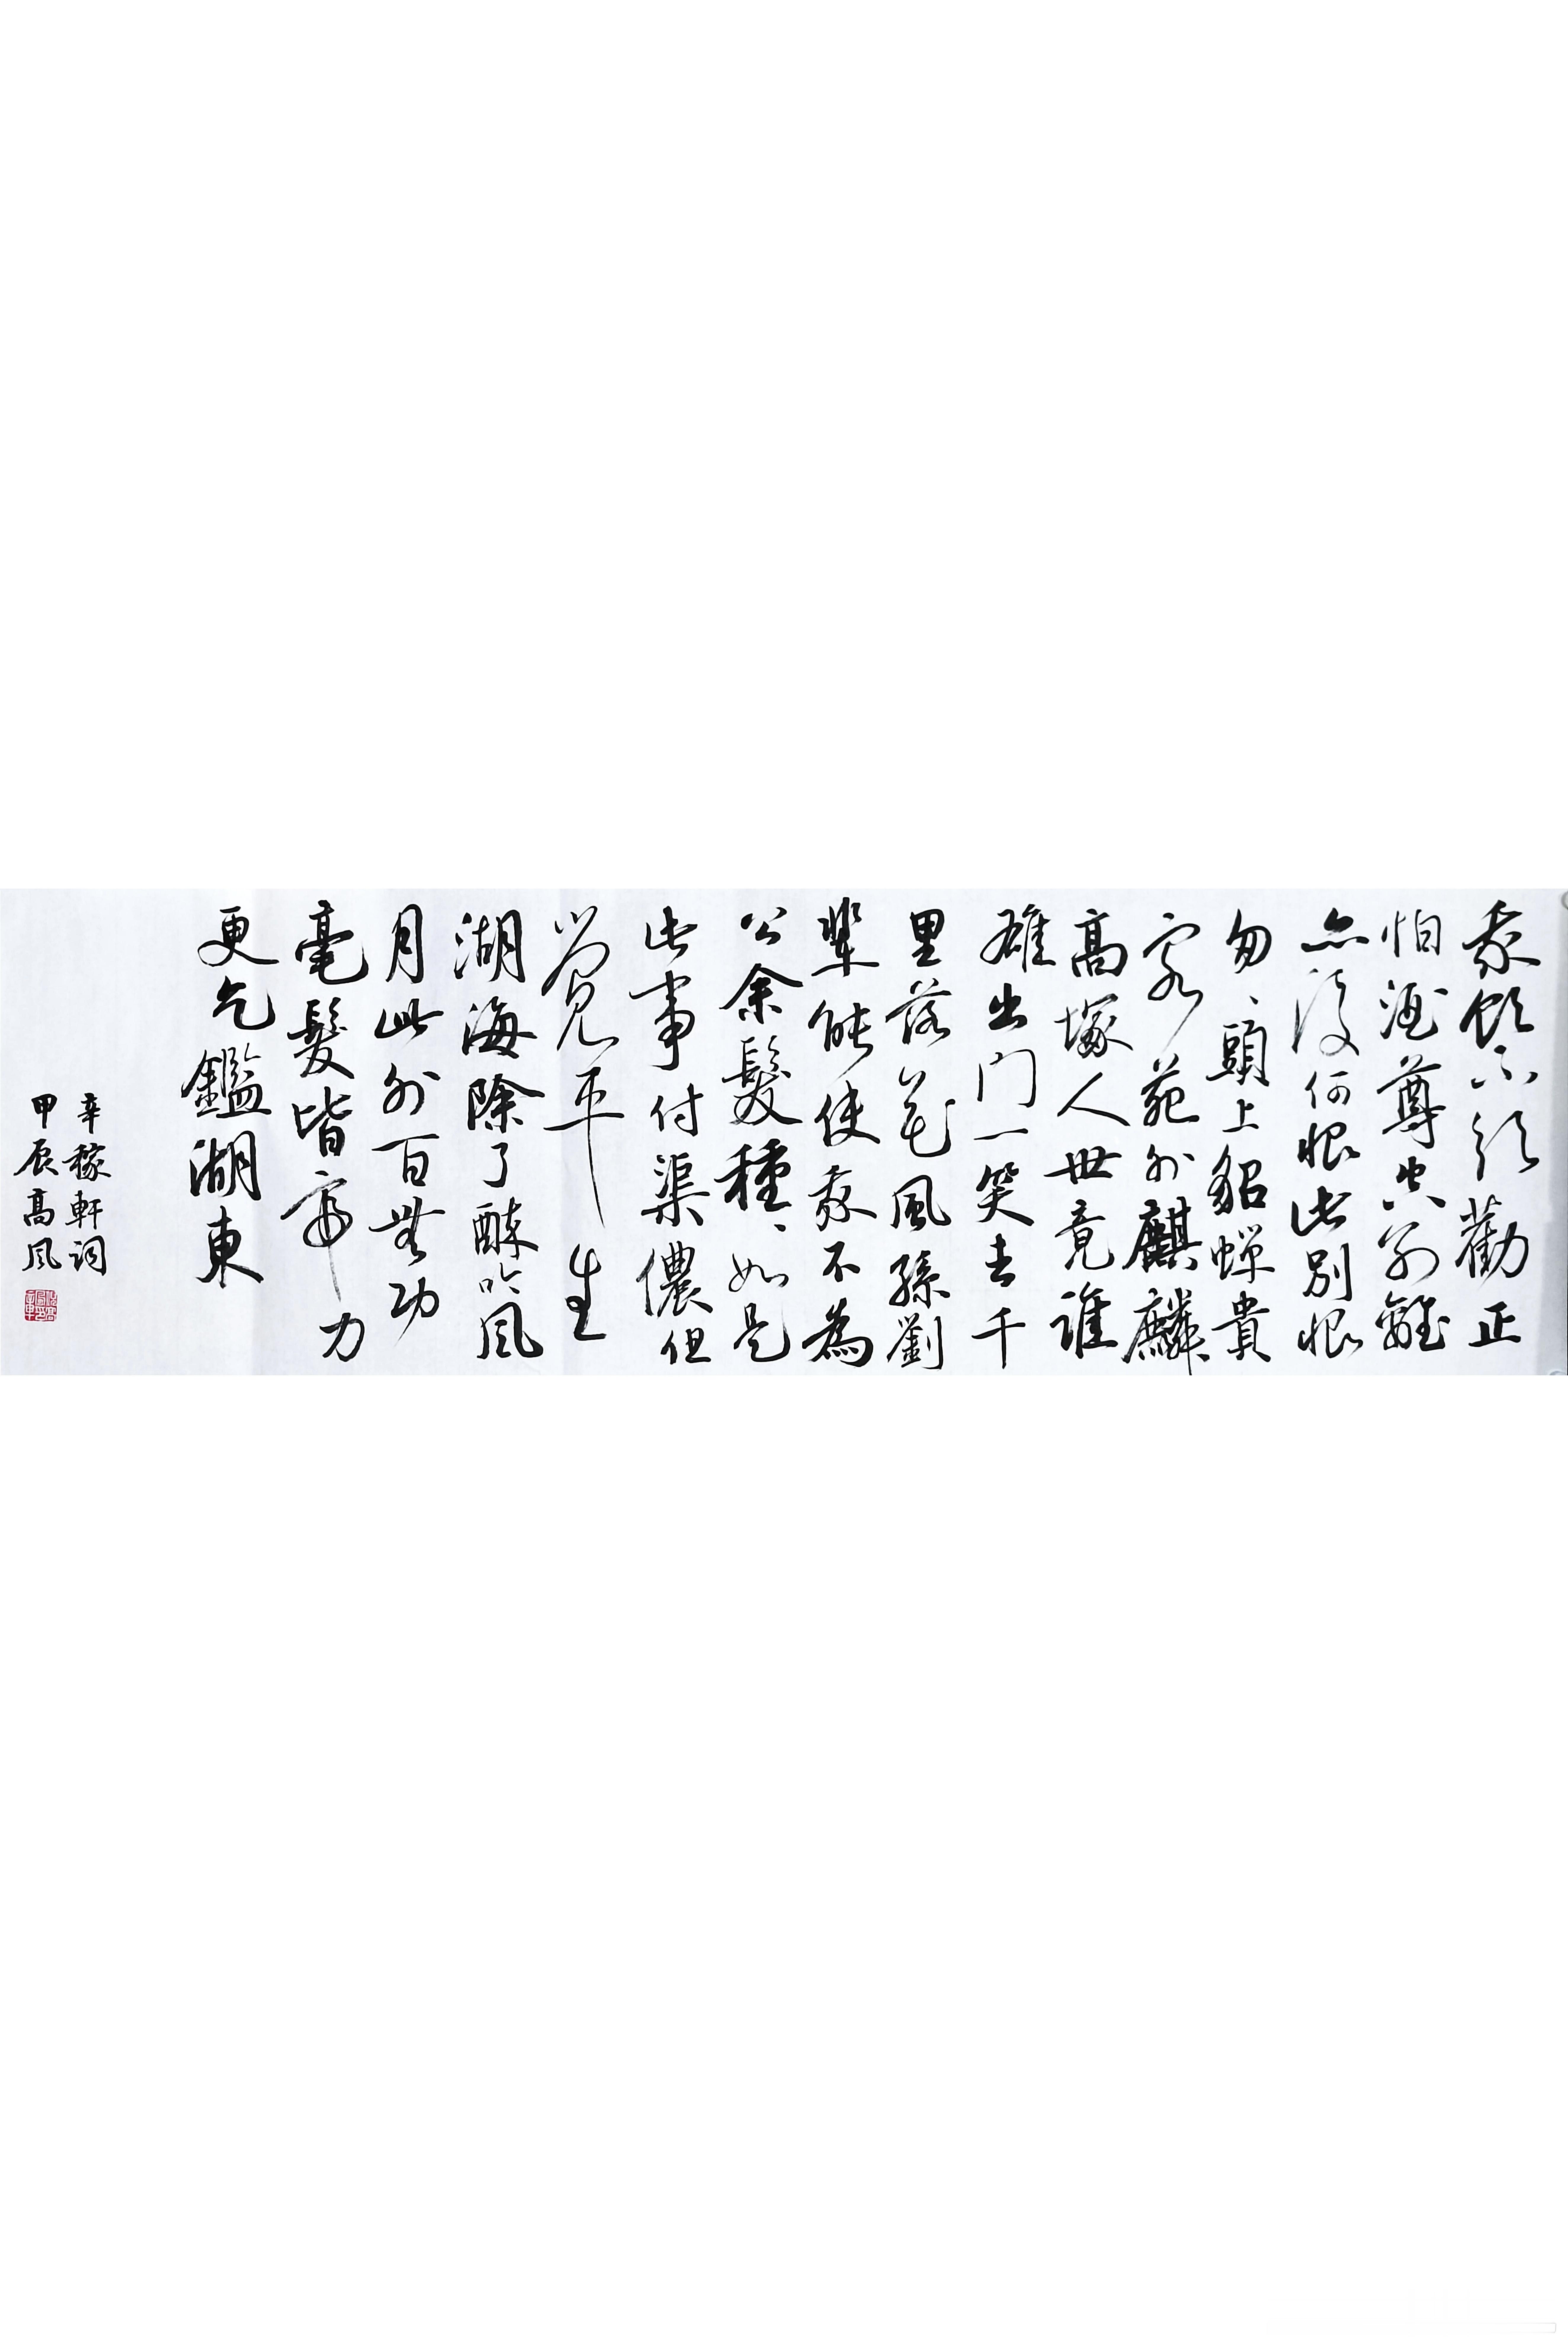 我飲不須勸正
怕酒尊空別離
亦復何恨此別恨
匆、頭上貂蟬貴
客苑外麒麟
高塚人世竟誰
雄出门一笑去千
里落花風孫劉
輩能使我不為
公余髮種、如是
此事付渠儂但
覺平生
湖海除了醉吟風
月此外百無功
毫髮皆帝力
更乞鑑湖東
辛稼軒詞
甲辰高風